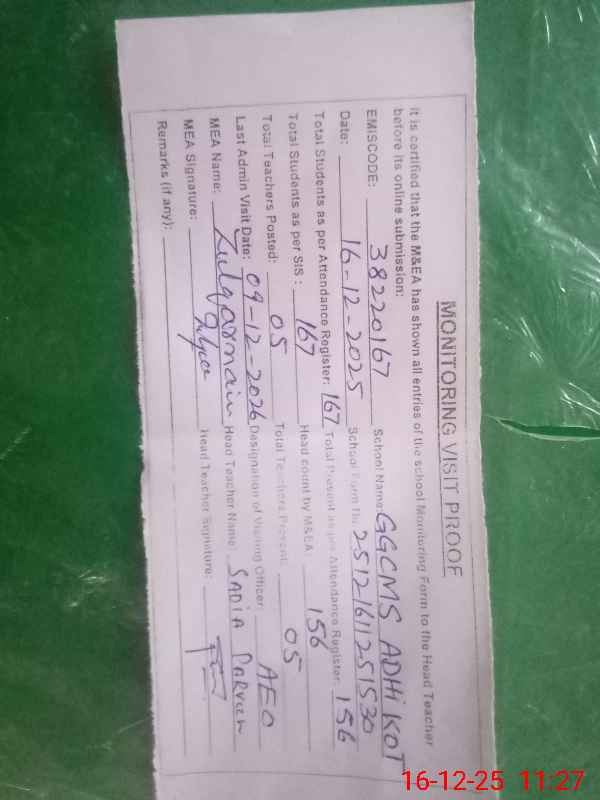 MONITORING VISIT PROOF
It is certified that the M&EA has shown all entries of the school Monitoring Form to the Head Teacher
before its online submission:
EMISCODE: 38220167 School Name: GGCMS ADHI KOT
Date: 16-12-2025 School Form No. 25121611251530
Total Students as per Attendance Register: 167 Total Present as per Attendance Register: 156
Total Students as per SIS: 167 Head count by M&EA: 156
Total Teachers Posted: 05 Total Teachers Present: 05
Last Admin Visit Date: 09-12-2026 Designation of Visiting Officer: AEO
MEA Name: Zulqarnain Head Teacher Name: SADIA PARVEEN
MEA Signature: Head Teacher Signature:
Remarks (if any):
16-12-25 11:27